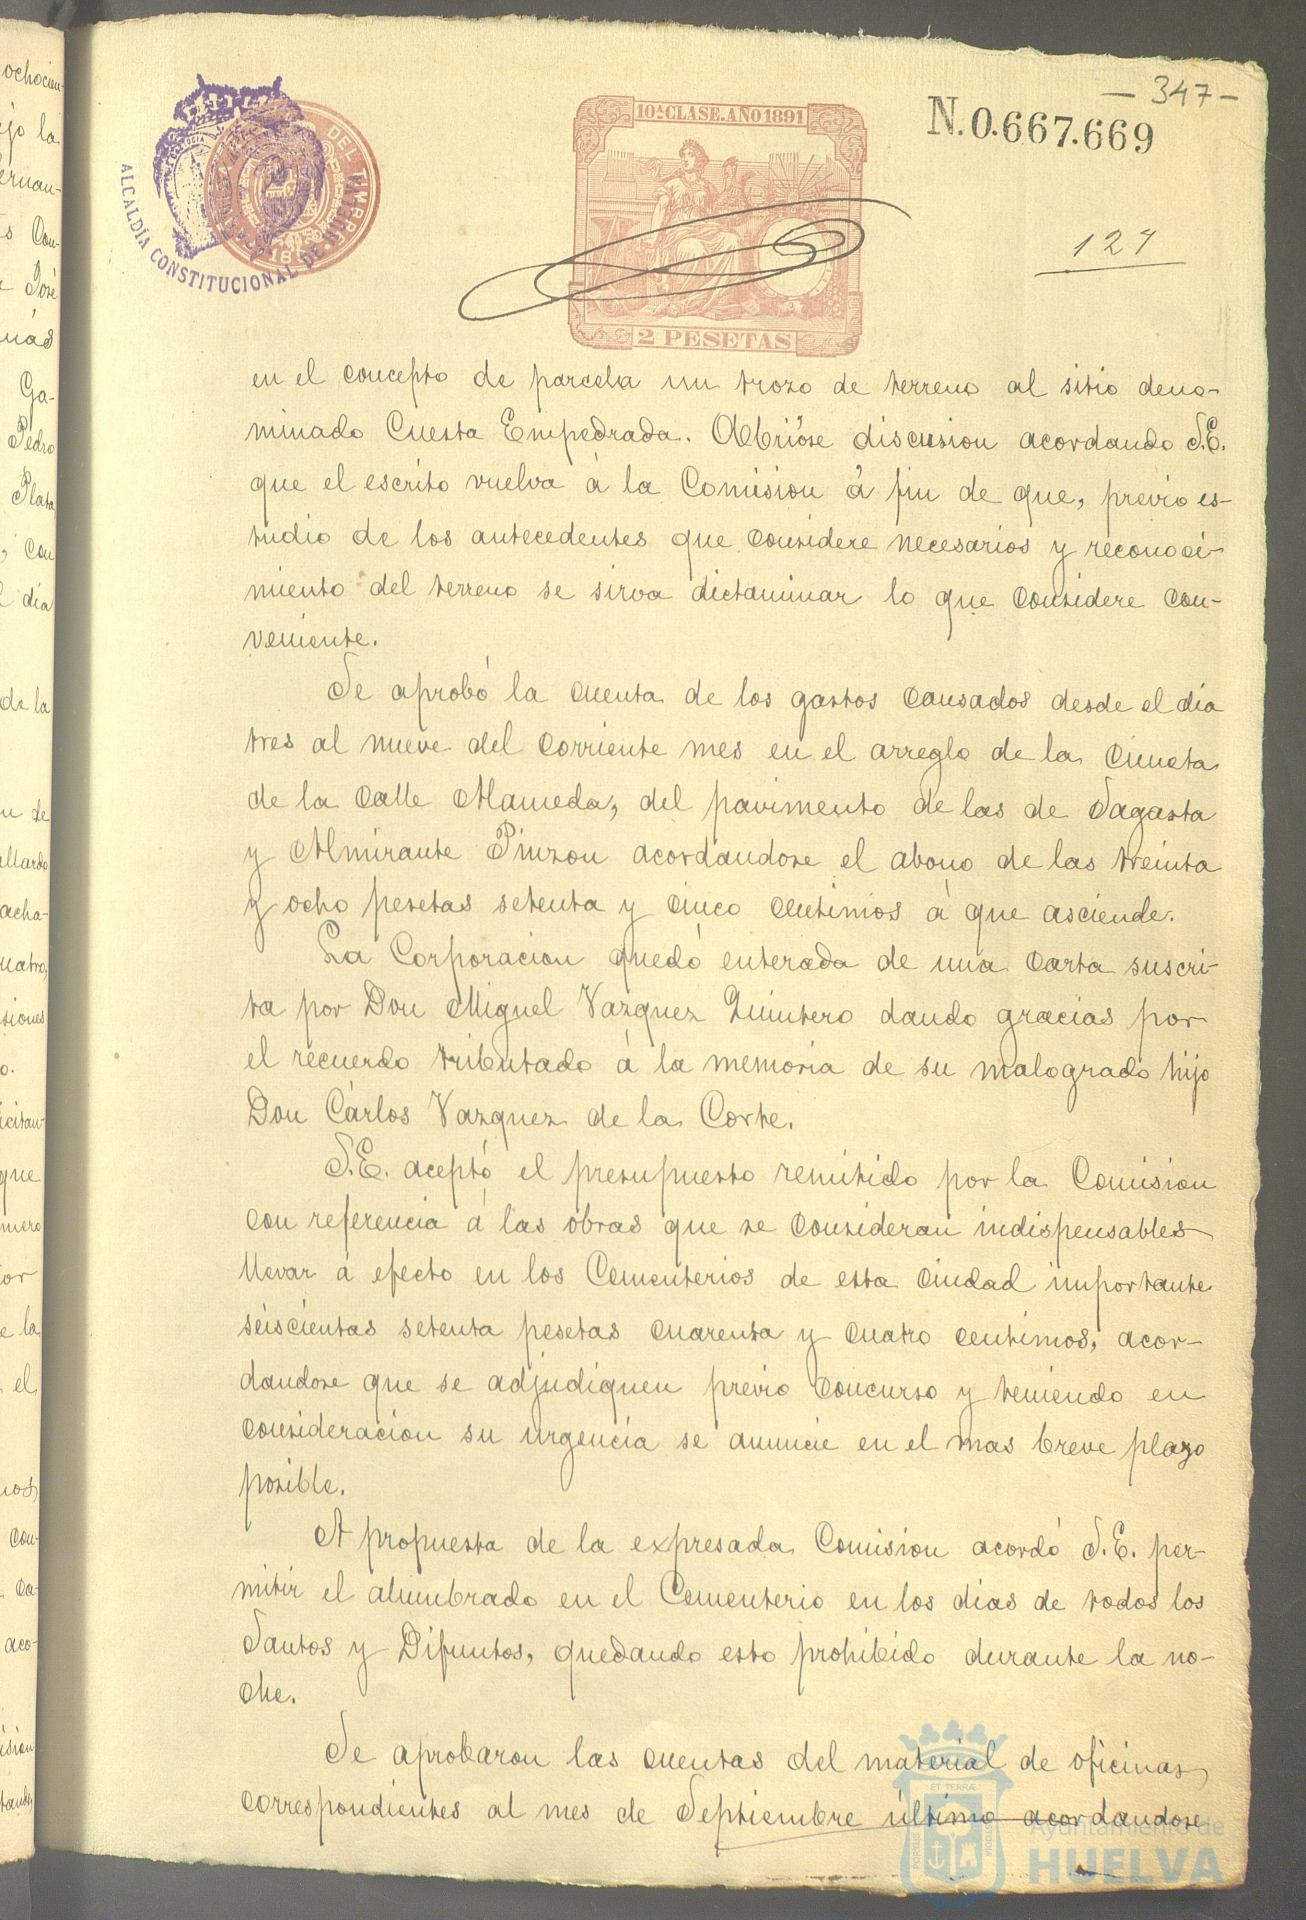 - 347 -
N.0.667.669
10ª CLASE. AÑO 1891
2 PESETAS
ALCALDÍA CONSTITUCIONAL DE HUELVA
DEL TIMBRE
127
en el concepto de parcela un trozo de terreno al sitio deno-
minado Cuesta Empedrada. Abrióse discusion acordando S.E.
que el escrito vuelva á la Comision á fin de que, previo es-
tudio de los antecedentes que considere necesarios y reconoci-
miento del terreno se sirva dictaminar lo que considere con-
veniente.
Se aprobó la cuenta de los gastos causados desde el dia
tres al nueve del corriente mes en el arreglo de la cuneta
de la calle Alameda, del pavimento de las de Sagasta
y Almirante Pinzon acordandose el abono de las treinta
y ocho pesetas setenta y cinco centimos á que asciende.
La Corporacion quedó enterada de una carta suscri-
ta por Don Miguel Vazquez Quintero dando gracias por
el recuerdo tributado á la memoria de su malogrado hijo
Don Cárlos Vazquez de la Corte.
S.E. aceptó el presupuesto remitido por la Comision
con referencia á las obras que se consideran indispensables
llevar á efecto en los Cementerios de esta Ciudad importante
seiscientas setenta pesetas cuarenta y cuatro centimos, acor-
dandose que se adjudiquen previo concurso y teniendo en
consideracion su urgencia se anuncie en el mas breve plazo
posible.
A propuesta de la expresada Comision acordó S.E. per-
mitir el alumbrado en el Cementerio en los dias de todos los
Santos y Difuntos, quedando esto prohibido durante la no-
che.
Se aprobaron las cuentas del material de oficinas,
correspondientes al mes de Septiembre último acordandose
Ayuntamiento de
HUELVA